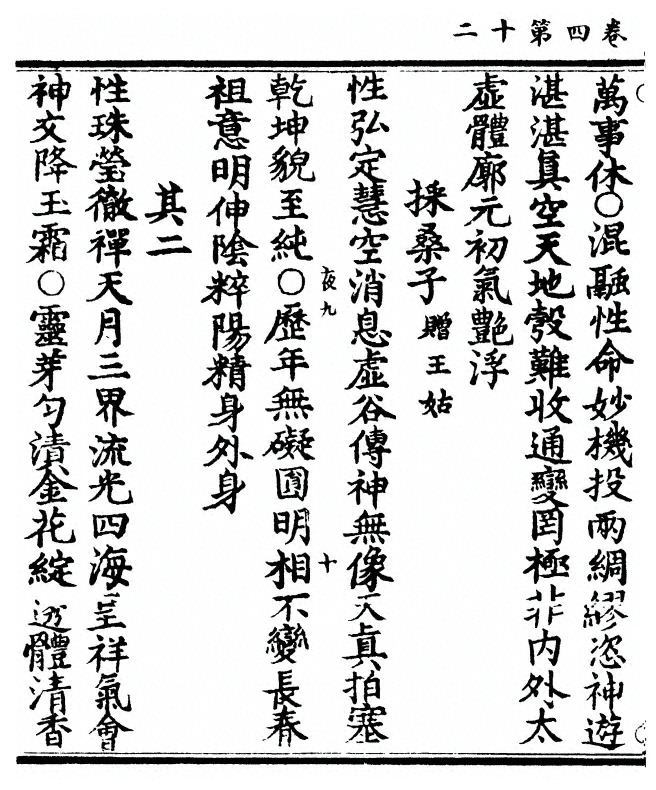 卷四第十二
萬事休○混融性命妙機投兩綢繆恣神遊
湛湛真空天地彀難收通變罔極非内外太
虛體廓元初氣艷浮
採桑子 贈王姑
性弘定慧空消息虛谷傳神無像天真拍塞
夜九 十
乾坤貌至純○歷年無礙圓明相不變長春
祖意明伸陰粹陽精身外身
其二
性珠瑩徹禪天月三界流光四海呈祥氣會
神交降玉霜○靈芽勻漬金花綻透體清香